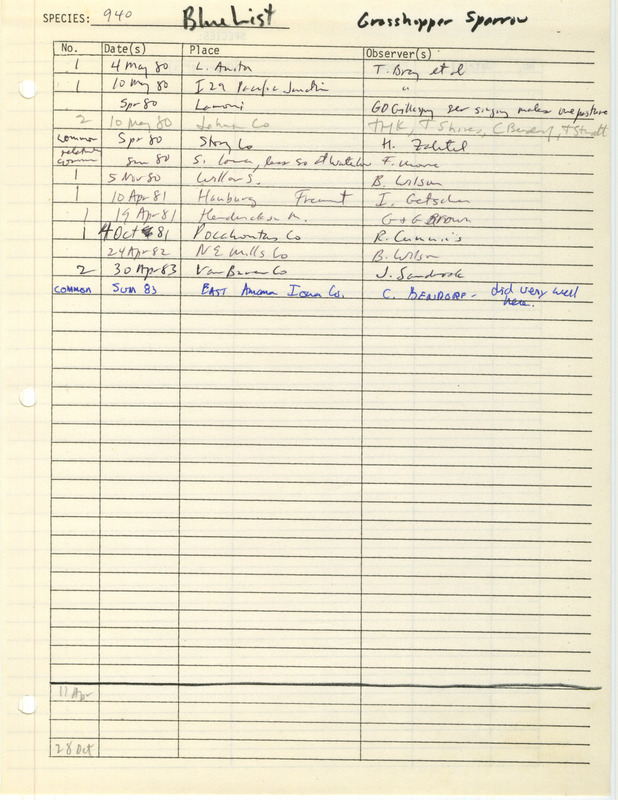 SPECIES: 940 Blue List Grasshopper Sparrow
No. Date(s) Place Observer(s)
1 4 May 80 L. Anita T. Bray et al
1 10 May 80 I 29 Pacific Junction "
Spr 80 Lamoni singing males one pasture
2 10 May 80 Johnson Co THK, T Shires, C Bendorf,
common Spr 80 Story Co H. Zaletel
relatively common Sum 80 S. Iowa, less so F. Moore
1 5 Nov 80 Willow S. B. Wilson
1 10 Apr 81 Hamburg Fremont I. Getscher
1 19 Apr 81 Hendrickson M. G & G Brown
1 4 Oct 81 Pocahontas Co R. Cummins
24 Apr 82 NE Mills Co B. Wilson
2 30 Apr 83 Van Buren Co J. Sandrock
COMMON SUM 83 EAST Amana Iowa Co. C. BENDORF - did very well
here.
11 Apr
28 Oct